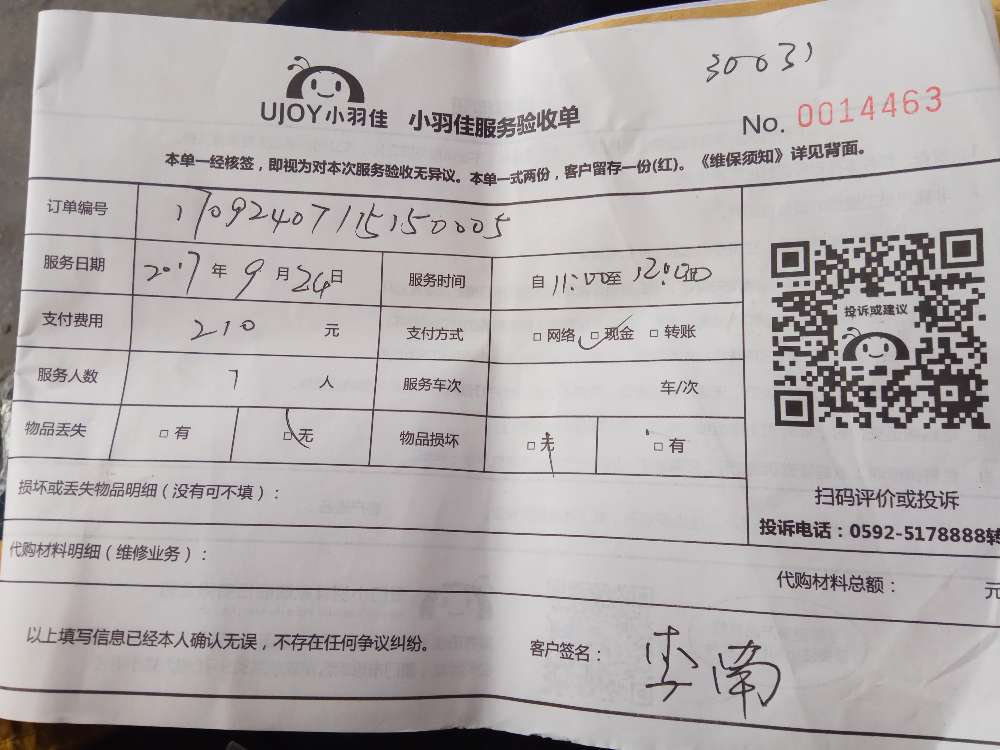 30031
UJOY小羽佳 小羽佳服务验收单
No. 0014463
本单一经核签，即视为对本次服务验收无异议。本单一式两份，客户留存一份(红)。《维保须知》详见背面。
订单编号 17092407115150005
服务日期 2017年9月24日 服务时间 自11:00至12:00
支付费用 210 元 支付方式 □网络 □现金 □转账
服务人数 1 人 服务车次 车/次
物品丢失 □有 □无 物品损坏 □无 □有
投诉或建议
扫码评价或投诉
投诉电话：0592-5178888转
损坏或丢失物品明细（没有可不填）：
代购材料明细（维修业务）：
代购材料总额： 元
以上填写信息已经本人确认无误，不存在任何争议纠纷。
客户签名： 李南